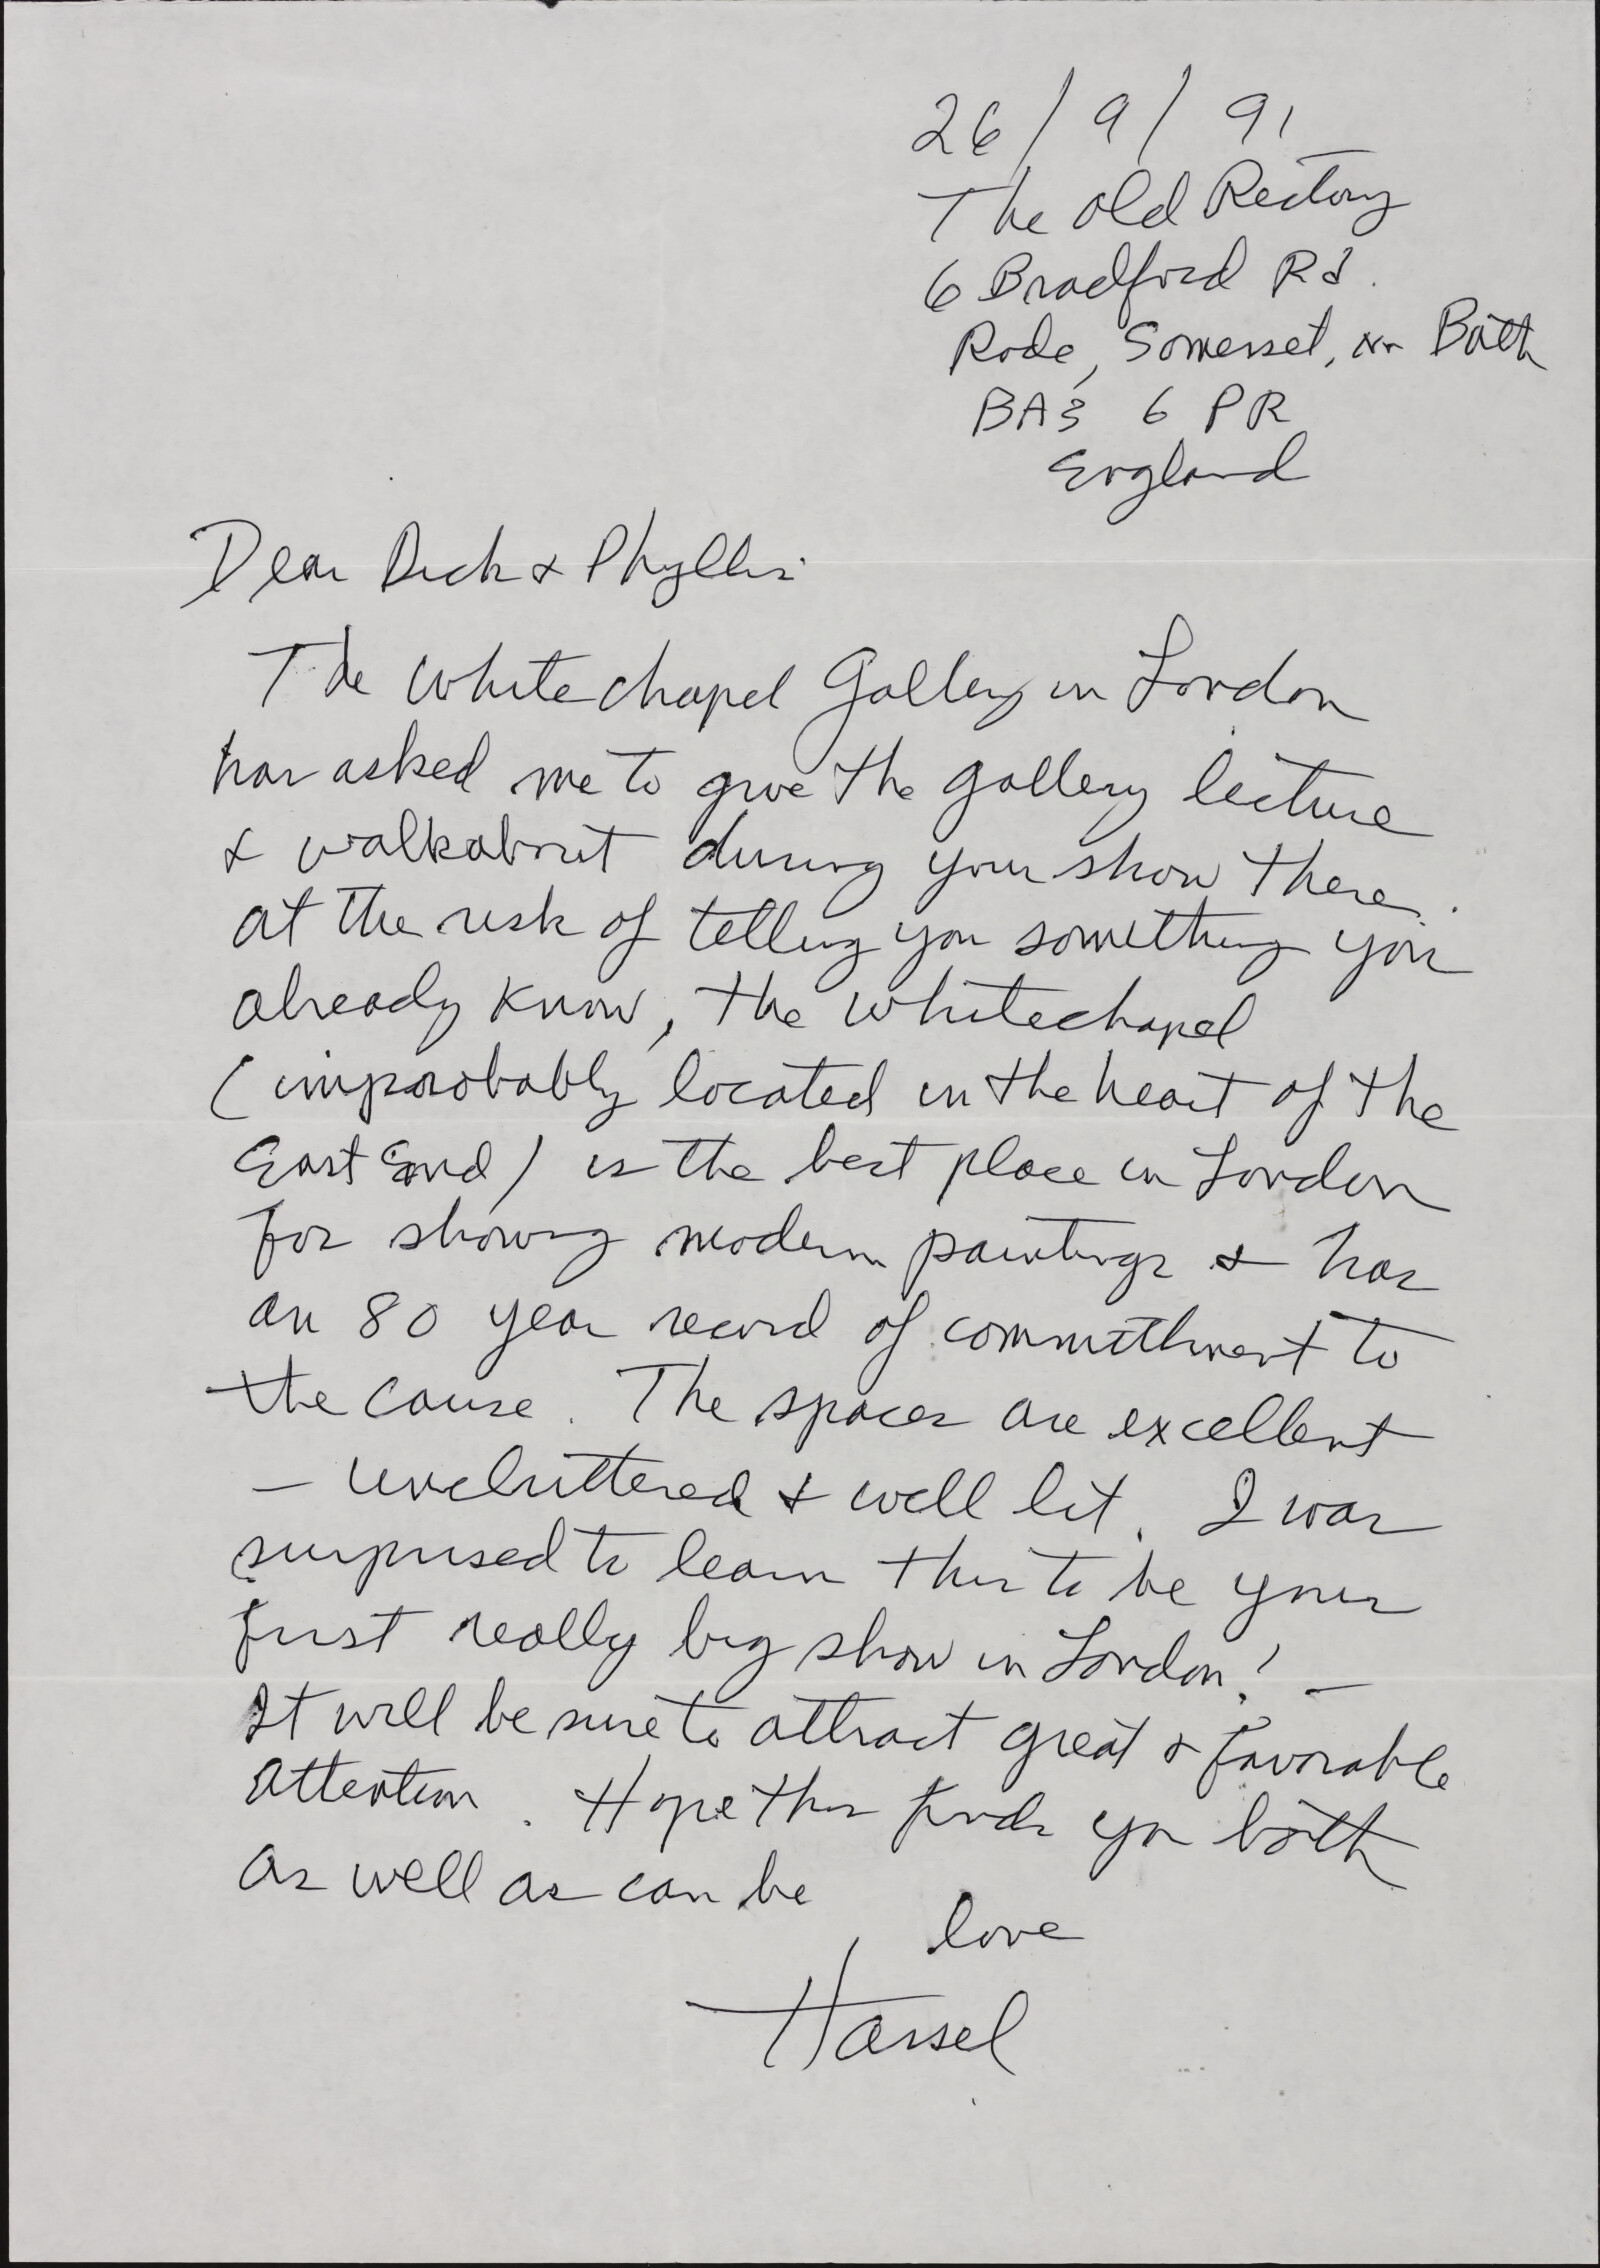 26/9/91
The Old Rectory
6 Bradford Rd.
Rode, Somerset, nr Bath
BA3 6 PR
England
Dear Dick & Phyllis:
The Whitechapel Gallery in London
has asked me to give the gallery lecture
& walkabout during your show there.
At the risk of telling you something you
already know, the Whitechapel
(improbably located in the heart of the
East End) is the best place in London
for showing modern paintings & has
an 80 year record of committment to
the cause. The spaces are excellent
– uncluttered & well lit. I was
surprised to learn this to be your
first really big show in London! –
It will be sure to attract great & favorable
attention. Hope this finds you both
as well as can be
love
Hassel